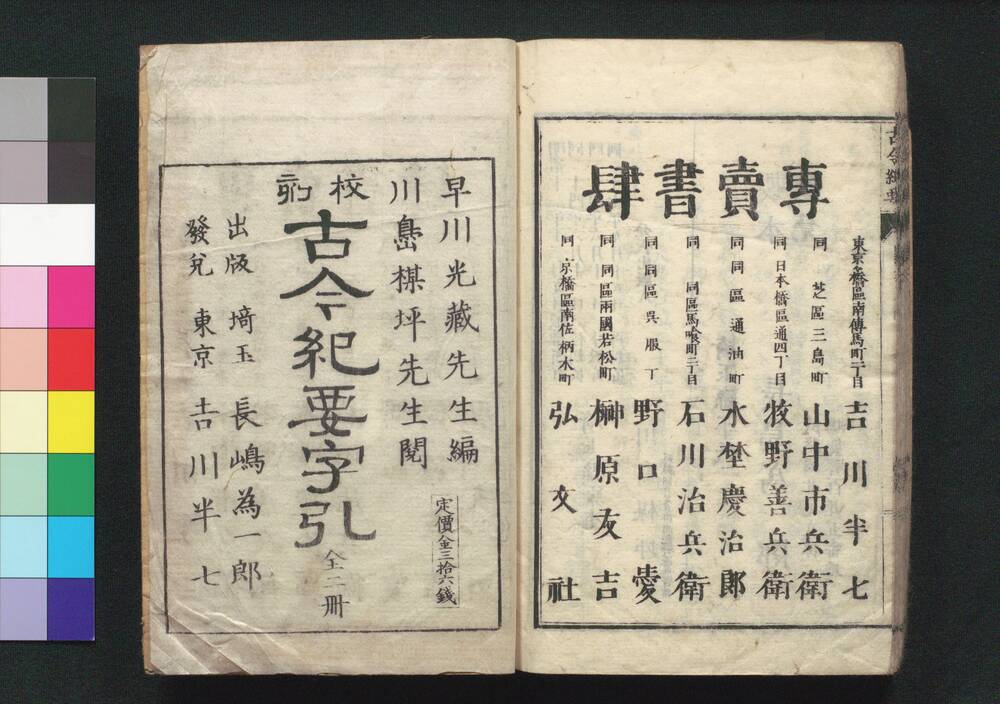 專賣書肆
東京京橋區南傳馬町一丁目 吉川半七
同 芝區三島町 山中市兵衛
同 日本橋區通四丁目 牧野善兵衛
同 同區通油町 水埜慶治郎
同 同區馬喰町二丁目 石川治兵衛
同 同區呉服丁 野口愛
同 同區兩國若松町 榊原友吉
同 京橋區南佐柄木町 弘文社
早川光藏先生編
川嶌楳坪先生閲
定價金三拾六錢
校刻
古今紀要字引
全二冊
出版 埼玉 長嶋為一郎
發兌 東京 吉川半七